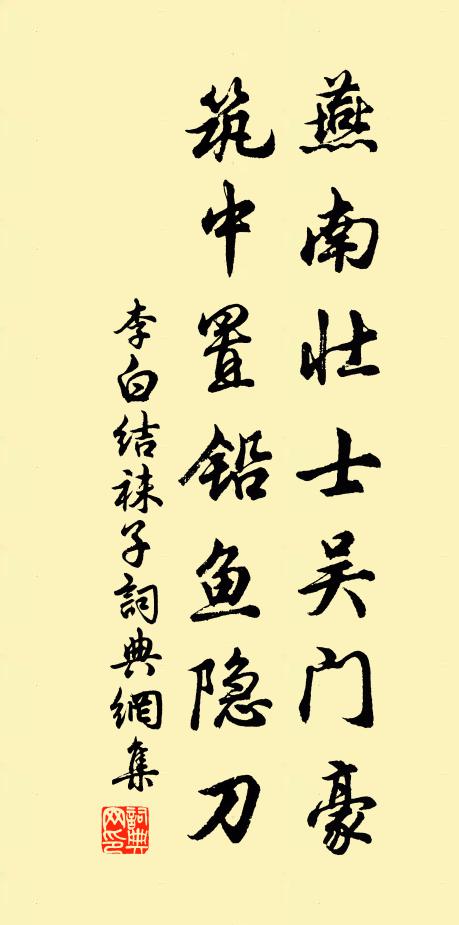 燕南壮士吴门豪
筑中置铅鱼隐刀
李白结袜子詞典網集
詞典网印